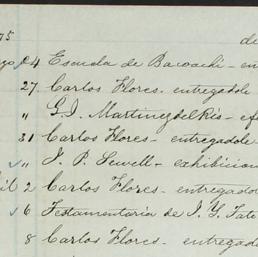 75 de
24 Escuela de Bawachi - en
27 Carlos Flores. entregadole
" G. I. Martinez del Rio - ef
31 Carlos Flores - entregadole
" J. P. Sewell - exhibicion
il 2 Carlos Flores - entregado
6 Testamentaria de I. Y. Tato
8 Carlos Flores - entregado